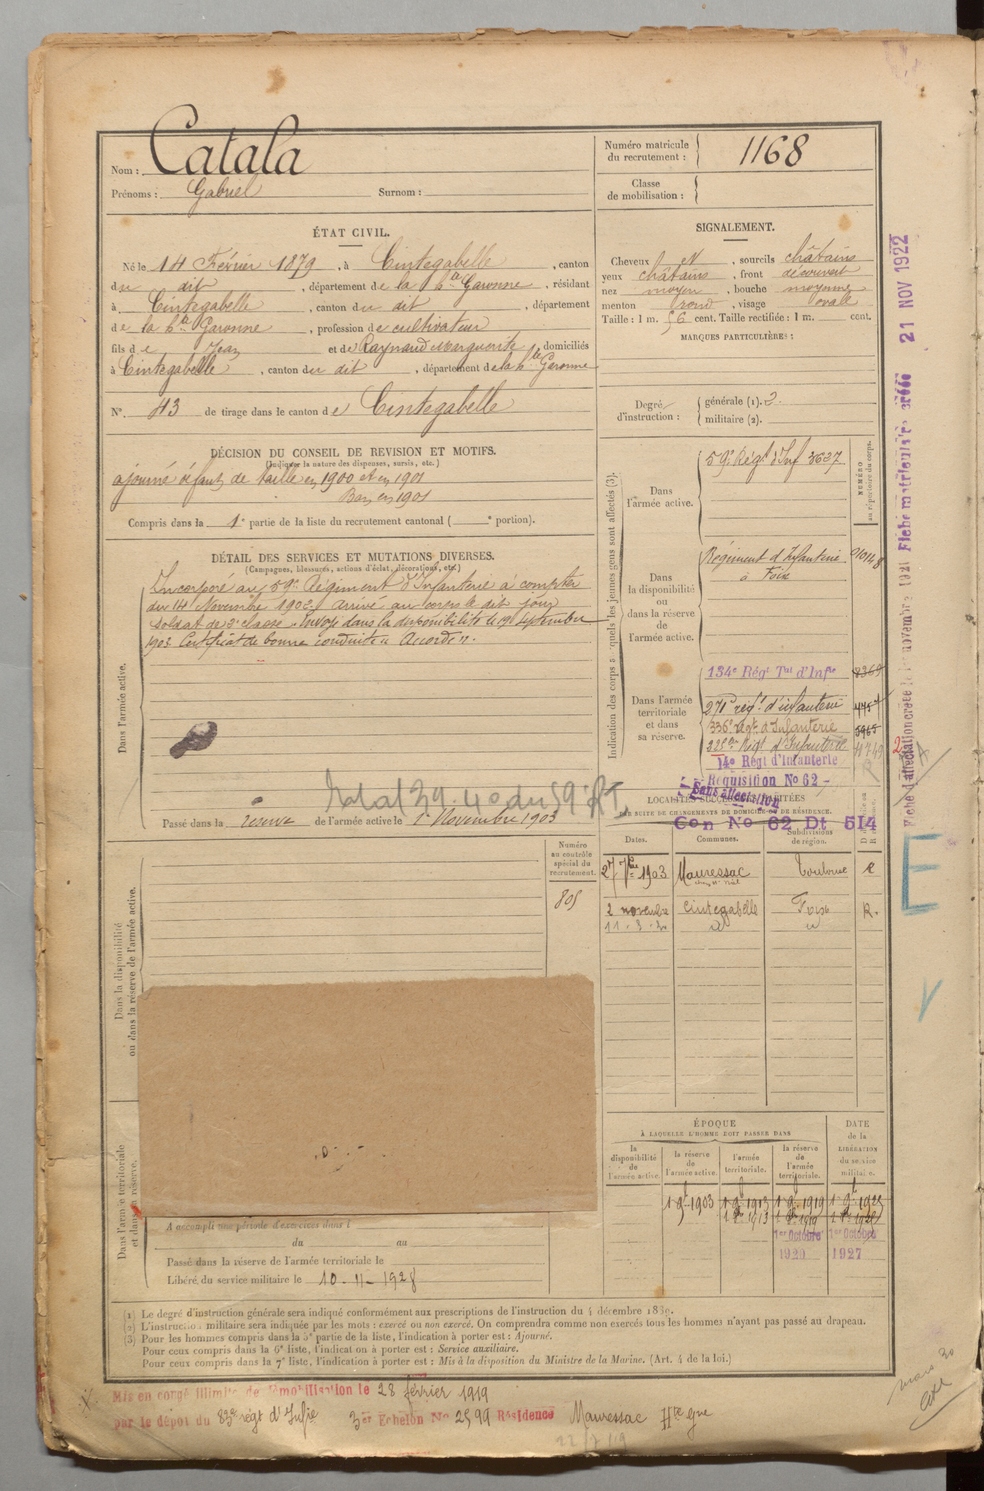 Nom : Catala
Prénoms : Gabriel Surnom :
Numéro matricule du recrutement : 1168
Classe de mobilisation :
ÉTAT CIVIL.
Né le 14 Février 1879, à Cintegabelle, canton
du dit, département de la hte Garonne, résidant
à Cintegabelle, canton du dit, département
de la hte Garonne, profession de cultivateur
fils de Jean et de Raynaud Marguerite, domiciliés
à Cintegabelle, canton du dit, département de la hte Garonne
N°. 43 de tirage dans le canton de Cintegabelle
SIGNALEMENT.
Cheveux N, sourcils châtains
yeux châtains, front découvert
nez moyen, bouche moyenne
menton rond, visage ovale
Taille : 1 m. 56 cent. Taille rectifiée : 1 m. cent.
MARQUES PARTICULIÈRES :
Degré d'instruction : générale (1). 2
militaire (2).
DÉCISION DU CONSEIL DE REVISION ET MOTIFS.
(Indiquer la nature des dispenses, sursis, etc.)
ajourné défaut de taille en 1900 et en 1901
Bon en 1901
Compris dans la 1e partie de la liste du recrutement cantonal ( e portion).
DÉTAIL DES SERVICES ET MUTATIONS DIVERSES.
(Campagnes, blessures, actions d'éclat, décorations, etc.)
Incorporé au 59e Régiment d'Infanterie à compter
du 14 Novembre 1902, arrivé au corps le dit jour
soldat de 2e classe. Envoyé dans la disponibilité le 19 septembre
1903 Certificat de bonne conduite "Accordé".
Dans l'armée active.
Passé dans la réserve de l'armée active le 1er Novembre 1903
Indication des corps auxquels les jeunes gens sont affectés (3).
NUMÉRO au répertoire du corps.
Dans l'armée active.
59e Régt d'Inf 3637
Dans la disponibilité ou dans la réserve de l'armée active.
Régiment d'Infanterie
à Foix
Dans l'armée territoriale et dans sa réserve.
134e Régt Tal d'Infie
271e regt d'infanterie
336e Regt d'Infanterie
14e Régt d'Infanterie
Réquisition No 62 -
Sans affectation
LOCALITÉS SUCCESSIVES HABITÉES
PAR SUITE DE CHANGEMENTS DE DOMICILE OU DE RÉSIDENCE.
Con No 62 Dt 514
Dates. Communes. Subdivisions de région.
27 7bre 1903 Mauressac Toulouse R
2 novembre Cintegabelle Foix R.
11-3-30
Numéro au contrôle spécial du recrutement.
805
Dans la disponibilité ou dans la réserve de l'armée active.
Dans l'armée territoriale et dans sa réserve.
A accompli une période d'exercices dans l
du au
Passé dans la réserve de l'armée territoriale le
Libéré du service militaire le 10-11-1928
ÉPOQUE
À LAQUELLE L'HOMME DOIT PASSER DANS
DATE de la LIBÉRATION du service militaire.
la disponibilité de l'armée active.
la réserve de l'armée active.
l'armée territoriale.
la réserve de l'armée territoriale.
1er Octobre 1920
1er Octobre 1927
(1) Le degré d'instruction générale sera indiqué conformément aux prescriptions de l'instruction du 4 décembre 1889.
(2) L'instruction militaire sera indiquée par les mots : exercé ou non exercé. On comprendra comme non exercés tous les hommes n'ayant pas passé au drapeau.
(3) Pour les hommes compris dans la 5e partie de la liste, l'indication à porter est : Ajourné.
Pour ceux compris dans la 6e liste, l'indication à porter est : Service auxiliaire.
Pour ceux compris dans la 7e liste, l'indication à porter est : Mis à la disposition du Ministre de la Marine. (Art. 4 de la loi.)
Mis en congé illimité de démobilisation le 28 février 1919
par le dépôt du 83e régt d'Infie 3er Echelon No 2599 Résidence Mauressac Hte Gne
22/7/19
Fiche matriculaire créée 21 NOV 1922
E